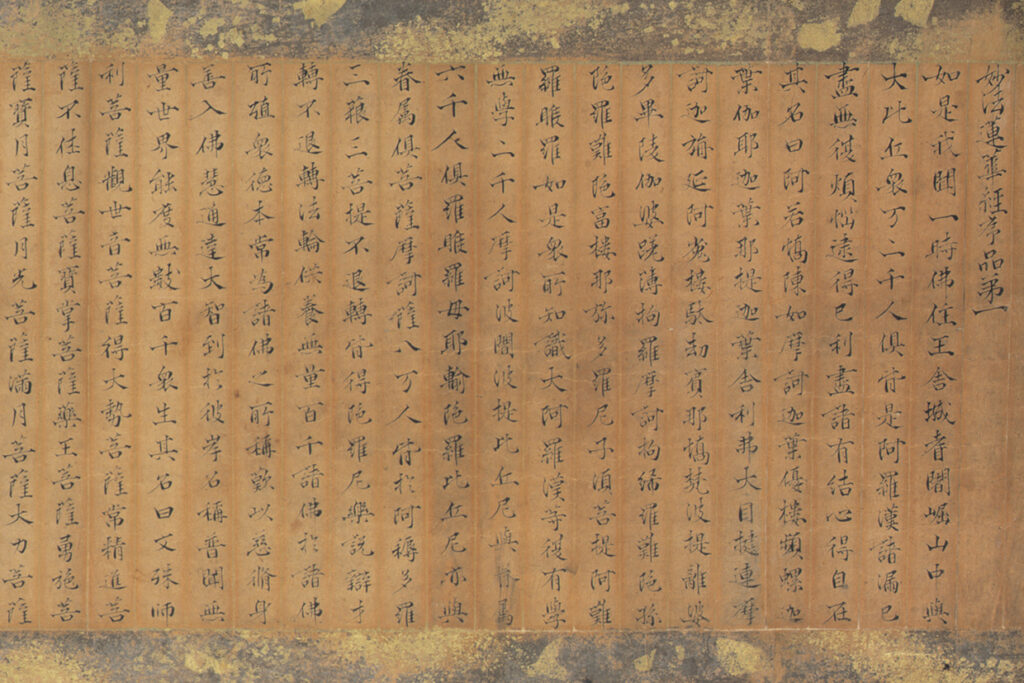 妙法蓮華經序品第一
如是我聞一時佛住王舍城耆闍崛山中與
大比丘衆万二千人俱皆是阿羅漢諸漏已
盡無復煩惱逮得己利盡諸有結心得自在
其名曰阿若憍陳如摩訶迦葉優樓頻螺迦
葉伽耶迦葉那提迦葉舍利弗大目揵連摩
訶迦旃延阿㝹樓馱劫賓那憍梵波提離婆
多畢陵伽婆蹉薄拘羅摩訶拘絺羅難陁孫
陁羅難陁富樓那弥多羅尼子須菩提阿難
羅睺羅如是衆所知識大阿羅漢等復有學
無學二千人摩訶波闍波提比丘尼與眷属
六千人俱羅睺羅母耶輸陁羅比丘尼亦與
眷属俱菩薩摩訶薩八万人皆於阿耨多羅
三藐三菩提不退轉皆得陁羅尼樂說辯才
轉不退轉法輪供養無量百千諸佛於諸佛
所殖衆德本常為諸佛之所稱歎以慈脩身
善入佛慧通達大智到於彼岸名稱普聞無
量世界能度無數百千衆生其名曰文殊師
利菩薩觀世音菩薩得大勢菩薩常精進菩
薩不休息菩薩寶掌菩薩藥王菩薩勇施菩
薩寶月菩薩月光菩薩滿月菩薩大力菩薩